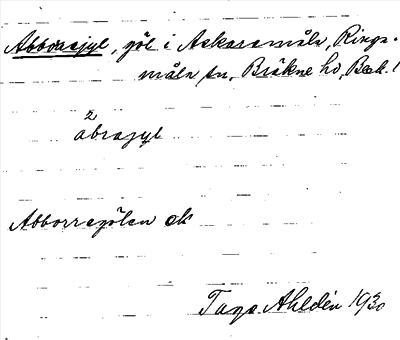 Abborrajyl, göl i Askaremåla, Ringa-
måla sn, Bräkne hd, Blek. l
2
åbrajyl
Abborregölen ek
Tage Ahldén 1930